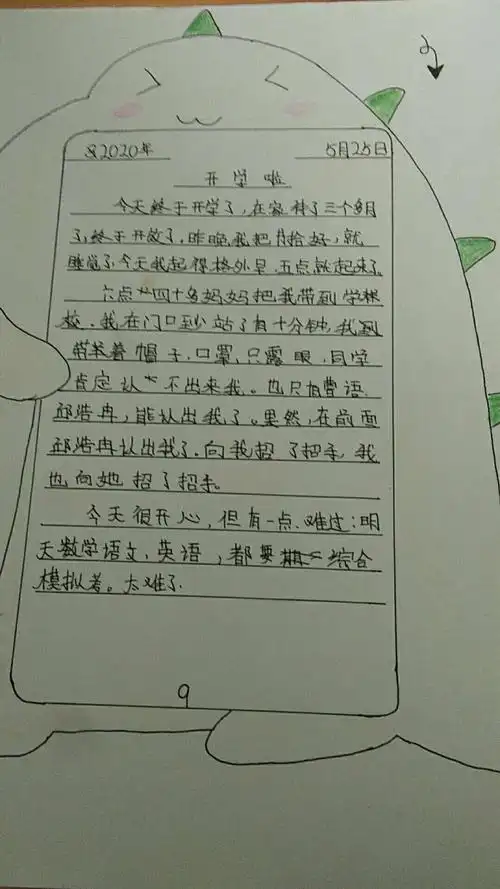 2020年 5月25日
开学啦
今天终于开学了,在家待了三个月
了,终于开放了,昨晚我把书拾好,就
睡觉了.今天我起得格外早,五点就起来了
六点四十多妈妈把我带到学
校.我在门口到站了有十分钟,我
带着帽子,口罩,只露眼,同学
肯定认不出来我。也只有曹语
邱浩冉,能认出我了。果然,在前面
邱浩冉认出我了.向我招了招手,我
也向她招了招手。
今天很开心,但有一点难过:明
天数学语文,英语,都要综合
模拟考。太难了.
9